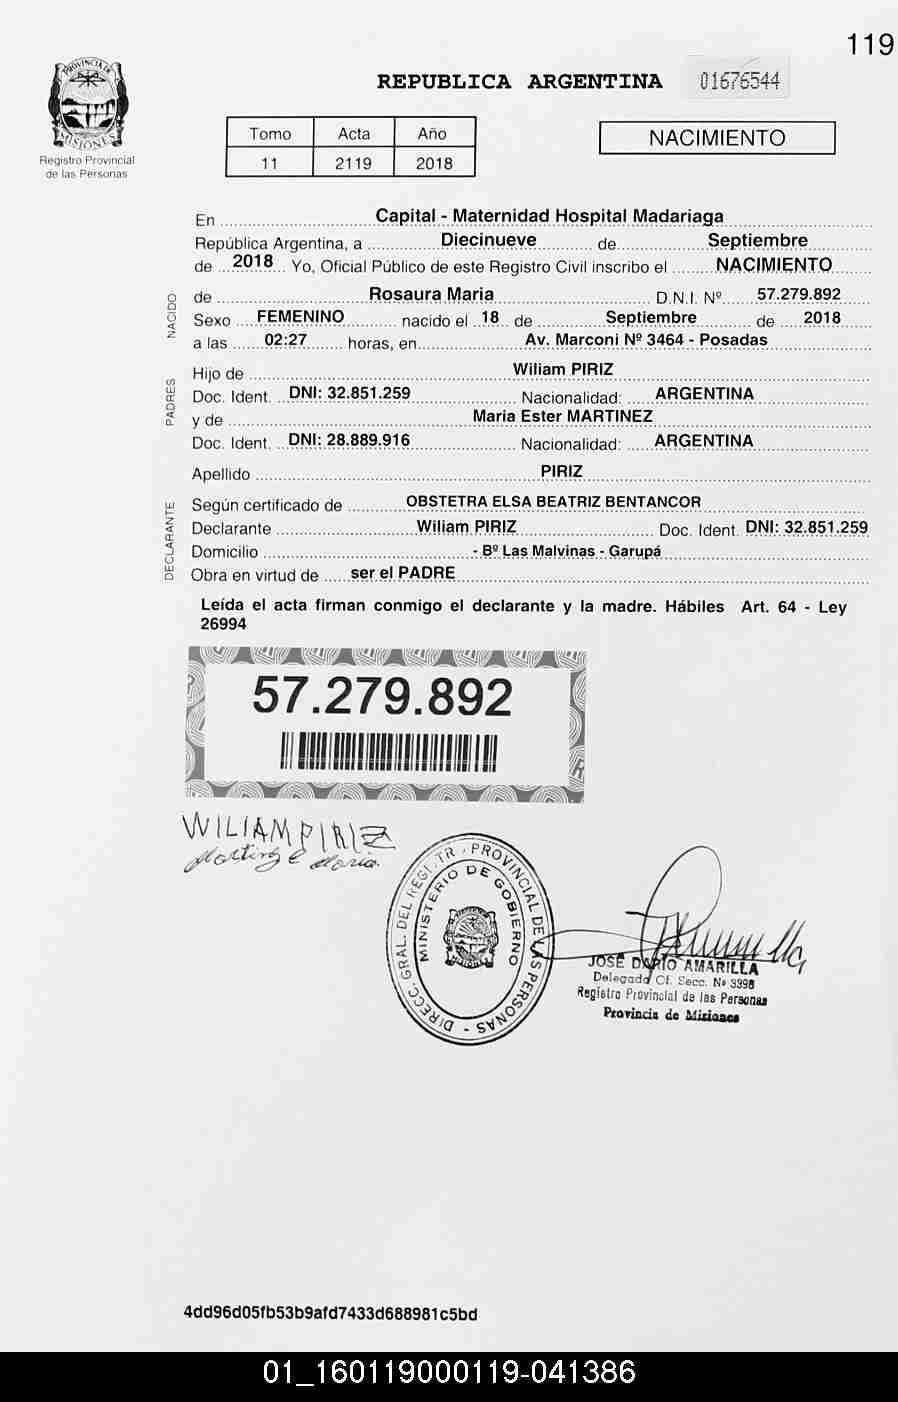 119
PROVINCIA DE
MISIONES
Registro Provincial
de las Personas
REPUBLICA ARGENTINA
01676544
Tomo Acta Año
11 2119 2018
NACIMIENTO
En Capital - Maternidad Hospital Madariaga
República Argentina, a Diecinueve de Septiembre
de 2018 Yo, Oficial Público de este Registro Civil inscribo el NACIMIENTO
NACIDO
de Rosaura Maria D.N.I. Nº 57.279.892
Sexo FEMENINO nacido el 18 de Septiembre de 2018
a las 02:27 horas, en Av. Marconi Nº 3464 - Posadas
PADRES
Hijo de Wiliam PIRIZ
Doc. Ident. DNI: 32.851.259 Nacionalidad: ARGENTINA
y de Maria Ester MARTINEZ
Doc. Ident. DNI: 28.889.916 Nacionalidad: ARGENTINA
Apellido PIRIZ
DECLARANTE
Según certificado de OBSTETRA ELSA BEATRIZ BENTANCOR
Declarante Wiliam PIRIZ Doc. Ident. DNI: 32.851.259
Domicilio - Bº Las Malvinas - Garupá
Obra en virtud de ser el PADRE
Leída el acta firman conmigo el declarante y la madre. Hábiles Art. 64 - Ley
26994
57.279.892
WILIAM PIRIZ
Martinez E Maria
DIRECC. GRAL. DEL REGISTR. PROVINCIAL DE LAS PERSONAS -
MINISTERIO DE GOBIERNO
JOSE DARIO AMARILLA
Delegado Of. Secc. Nº 3398
Registro Provincial de las Personas
Provincia de Misiones
4dd96d05fb53b9afd7433d688981c5bd
01_160119000119-041386